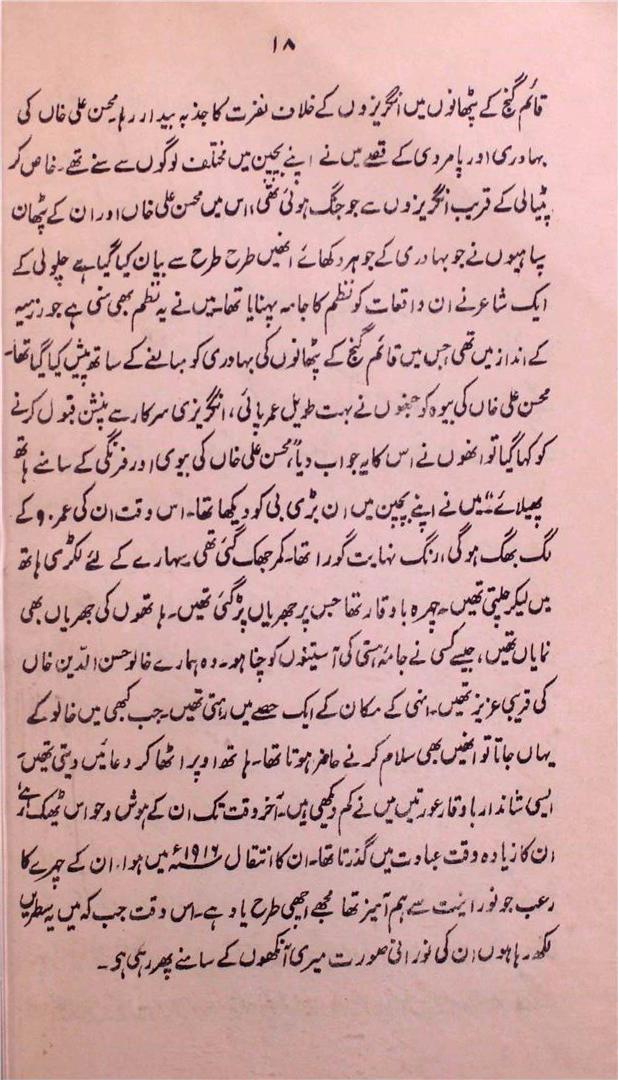 ۱۸
قائم گنج کے پٹھانوں میں انگریزوں کے خلاف نفرت کا جذبہ بیدار رہا۔ محسن علی خاں کی
بہادری اور پامردی کے قصے میں نے اپنے بچپن میں مختلف لوگوں سے سنے تھے۔ خاص کر
پٹیالی کے قریب انگریزوں سے جو جنگ ہوئی تھی، اس میں محسن علی خاں اور ان کے پٹھان
سپاہیوں نے جو بہادری کے جوہر دکھائے انھیں طرح طرح سے بیان کیا گیا ہے چلولی کے
ایک شاعر نے ان واقعات کو نظم کا جامہ پہنایا تھا۔ میں نے یہ نظم بھی سنی ہے جو رزمیہ
کے انداز میں تھی جس میں قائم گنج کے پٹھانوں کی بہادری کو مبالغے کے ساتھ پیش کیا گیا تھا۔
محسن علی خاں کی بیوہ کو جنھوں نے بہت طویل عمر پائی، انگریزی سرکار سے پنشن قبول کرنے
کو کہا گیا تو انھوں نے اس کا یہ جواب دیا "محسن علی خاں کی بیوی اور فرنگی کے سامنے ہاتھ
پھیلائے" میں نے اپنے بچپن میں ان بڑی بی کو دیکھا تھا۔ اس وقت ان کی عمر ۹۰ کے
لگ بھگ ہوگی، رنگ نہایت گورا تھا۔ کمر جھک گئی تھی۔ سہارے کے لئے لکڑی ہاتھ
میں لیکر چلتی تھیں۔ چہرہ باوقار تھا جس پر جھریاں پڑ گئی تھیں۔ ہاتھوں کی جھریاں بھی
نمایاں تھیں، جیسے کسی نے جامۂ ہستی کی آستینوں کو چنا ہو۔ وہ ہمارے خالو حسن الدین خاں
کی قریبی عزیز تھیں۔ انہی کے مکان کے ایک حصے میں رہتی تھیں۔ جب کبھی میں خالو کے
یہاں جاتا تو انھیں بھی سلام کرنے حاضر ہوتا تھا۔ ہاتھ اوپر اٹھا کر دعائیں دیتی تھیں۔
ایسی شاندار باوقار عورتیں میں نے کم دیکھی ہیں۔ آخر وقت تک ان کے ہوش و حواس ٹھیک رہے
ان کا زیادہ وقت عبادت میں گذرتا تھا۔ ان کا انتقال ۱۹۱۶ء میں ہوا۔ ان کے چہرے کا
رعب جو نورانیت سے ہم آمیز تھا مجھے اچھی طرح یاد ہے۔ اس وقت جب کہ میں یہ سطریں
لکھ رہا ہوں ان کی نورانی صورت میری آنکھوں کے سامنے پھر رہی ہے۔